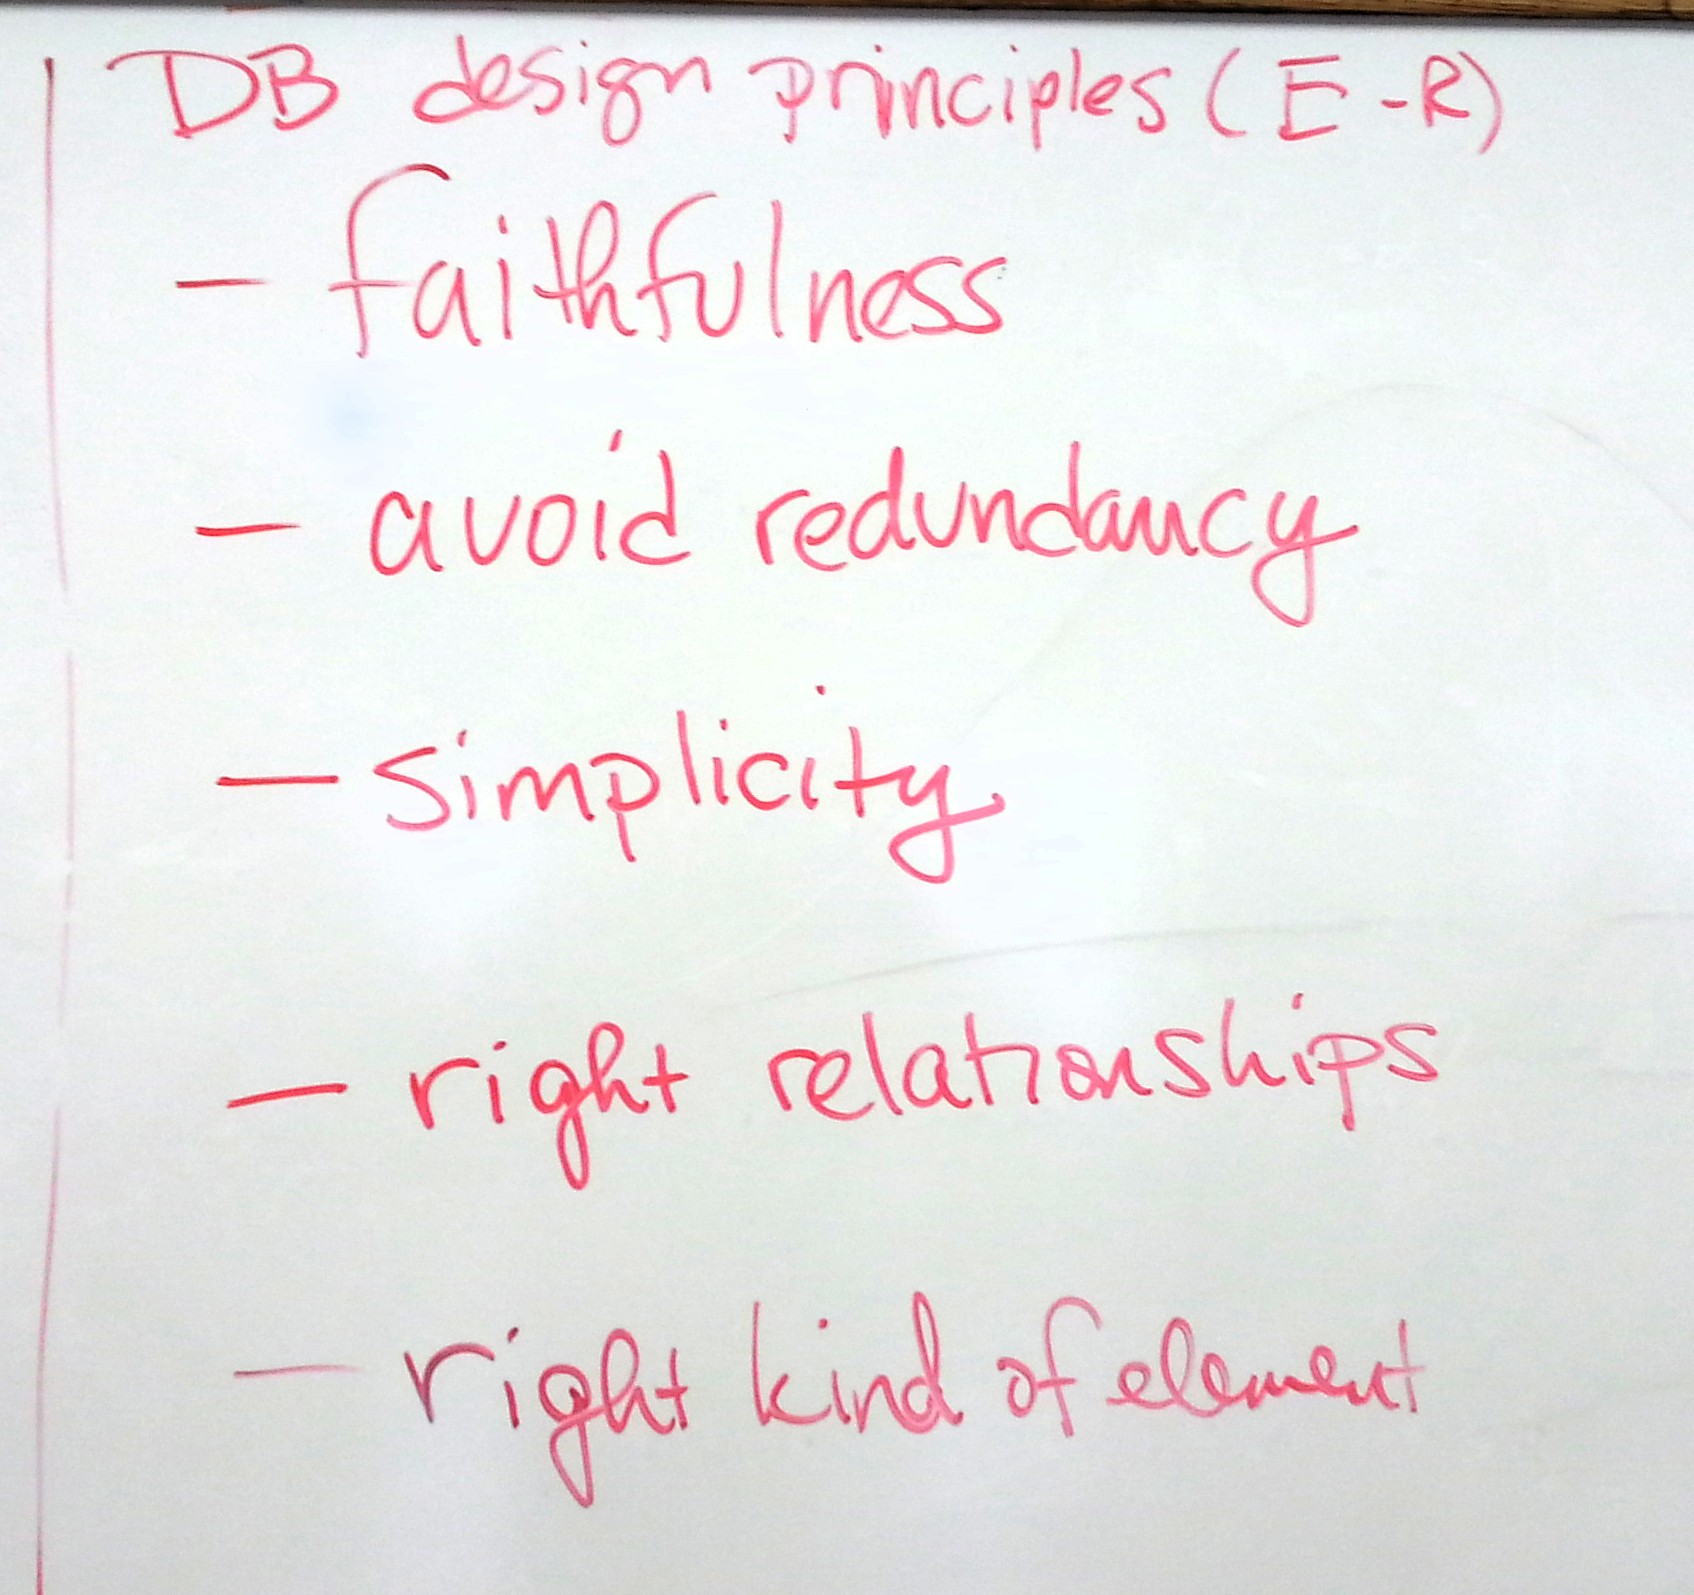 DB design principles (E-R)
- faithfulness
- avoid redundancy
- simplicity
- right relationships
- right kind of element